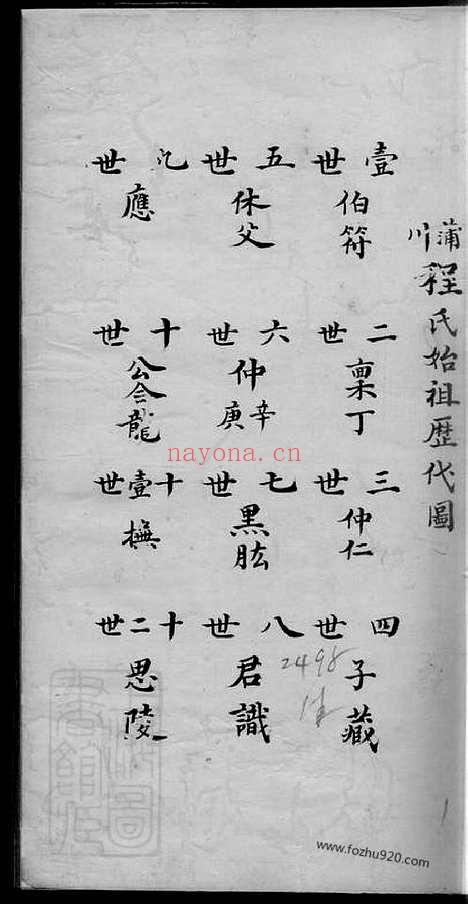 蒲川程氏始祖歷代圖
壹世 伯符
二世 稟丁
三世 仲仁
四世 子藏
五世 休父
六世 仲辛庚
七世 黑肱
八世 君識
九世 應
十世 公會龍
十壹世 撫
十二世 思陵
2498
1
nayona.cn
www.fozhu920.com